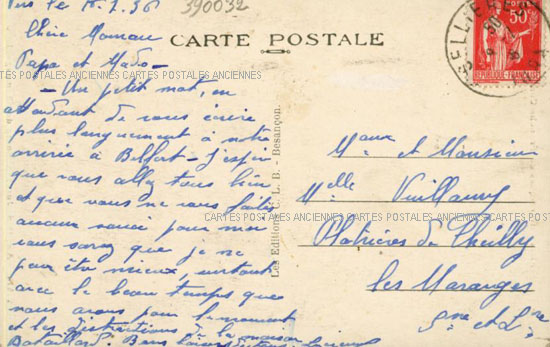 390032
CARTE POSTALE
Chère Maman
Papa et Mado -
- Un petit mot, en
attendant de vous écrire
plus longuement à notre
arrivée à Belfort - J'espère
que vous allez tous bien
et que vous ne vous faites
aucun souci pour moi
vous savez que je ne
peux être mieux, surtout
avec le beau temps que
nous avons pour le moment
et les distractions de la maison
Les Editions C. L. B. - Besançon.
50c
POSTES
REPUBLIQUE FRANÇAISE
et Monsieur
Melle Vuillamy
Platrières de Theilly
les Maranges
Sne et Lre
CARTES POSTALES ANCIENNES CARTES POSTALES ANCIENNES CARTES POSTALES ANCIENNES
CARTES POSTALES ANCIENNES CARTES POSTALES ANCIENNES CARTES POSTALES ANCIENNES